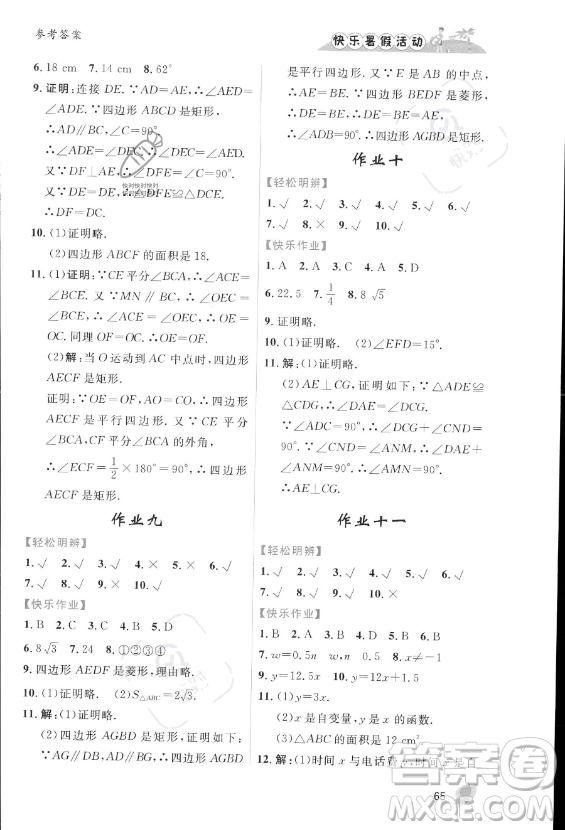 参考答案
快乐暑假活动
6. 18 cm  7. 14 cm  8. 62°
9. 证明:连接 DE. ∵AD=AE, ∴∠AED=
∠ADE. ∵四边形 ABCD 是矩形,
∴AD∥BC, ∠C=90°.
∴∠ADE=∠DEC, ∴∠DEC=∠AED.
又∵DF⊥AE, ∴∠DFE=∠C=90°.
∵DE=DE, ∴△DFE≌△DCE.
∴DF=DC.
10. (1)证明略.
(2)四边形 ABCF 的面积是 18.
11. (1)证明:∵CE 平分∠BCA, ∴∠OCE=
∠BCE. 又∵MN∥BC, ∴∠OEC=
∠BCE, ∴∠ACE=∠OEC. ∴OE=
OC. 同理 OF=OC. ∴OE=OF.
(2)解:当 O 运动到 AC 中点时,四边形
AECF 是矩形.
证明:∵OE=OF,AO=CO,∴四边形
AECF 是平行四边形. 又∵CE 平分
∠BCA,CF 平分△ABC 的外角,
∴∠ECF=1/2×180°=90°,∴四边形
AECF 是矩形.
作业九
【轻松明辨】
1. √  2. √  3. ×  4. ×  5. ×  6. √
7. √  8. √  9. ×  10. √
【快乐作业】
1. B  2. C  3. D  4. B  5. D
6. 8√3  7. 24  8. ①②③④
9. 四边形 AEDF 是菱形,理由略.
10. (1)证明略.  (2)S△ABC=2√3.
11. (1)证明略.
(2)四边形 AGBD 是矩形. 证明如下:
∵AG∥DB,AD∥BG,∴四边形 AGBD
是平行四边形. 又∵E 是 AB 的中点,
∴ED=EB. ∵四边形 BEDF 是菱形,
∴∠ADB=90°. ∴四边形 AGBD 是矩形.
作业十
【轻松明辨】
1. √  2. √  3. ×  4. √  5. √  6. √
7. √  8. ×  9. ×  10. √
【快乐作业】
1. A  2. D  3. B  4. A  5. D
6. 22.5  7. 1/4  8. 8√5
9. 证明略.
10. (1)证明略.  (2)∠EFD=15°.
11. 解:(1)证明略.
(2)AE⊥CG,证明如下:∵△ADE≌
△CDG,∴∠DAE=∠DCG. 又
∵∠ADC=90°,∠CND=∠ANM,
∴∠CND=∠AMN=90°.
∴AE⊥CG.
作业十一
【轻松明辨】
1. √  2. √  3. √  4. √  5. √  6. √
7. √  8. √  9. √  10. ×
【快乐作业】
1. B  2. D  3. D  4. C  5. B  6. C
7. w=0.5n  w  0.5  8. y=x+5
9. y=12.5x  10. y=2x
11. (1)y=3x.
(2)x 是自变量,y 是 x 的函数.
(3)△ABC 的面积是 12 cm².
12. 解:(1)时间 x 与电话费y,时间 x 是自
65
快对快对快对
答案圈
MXQE.COM